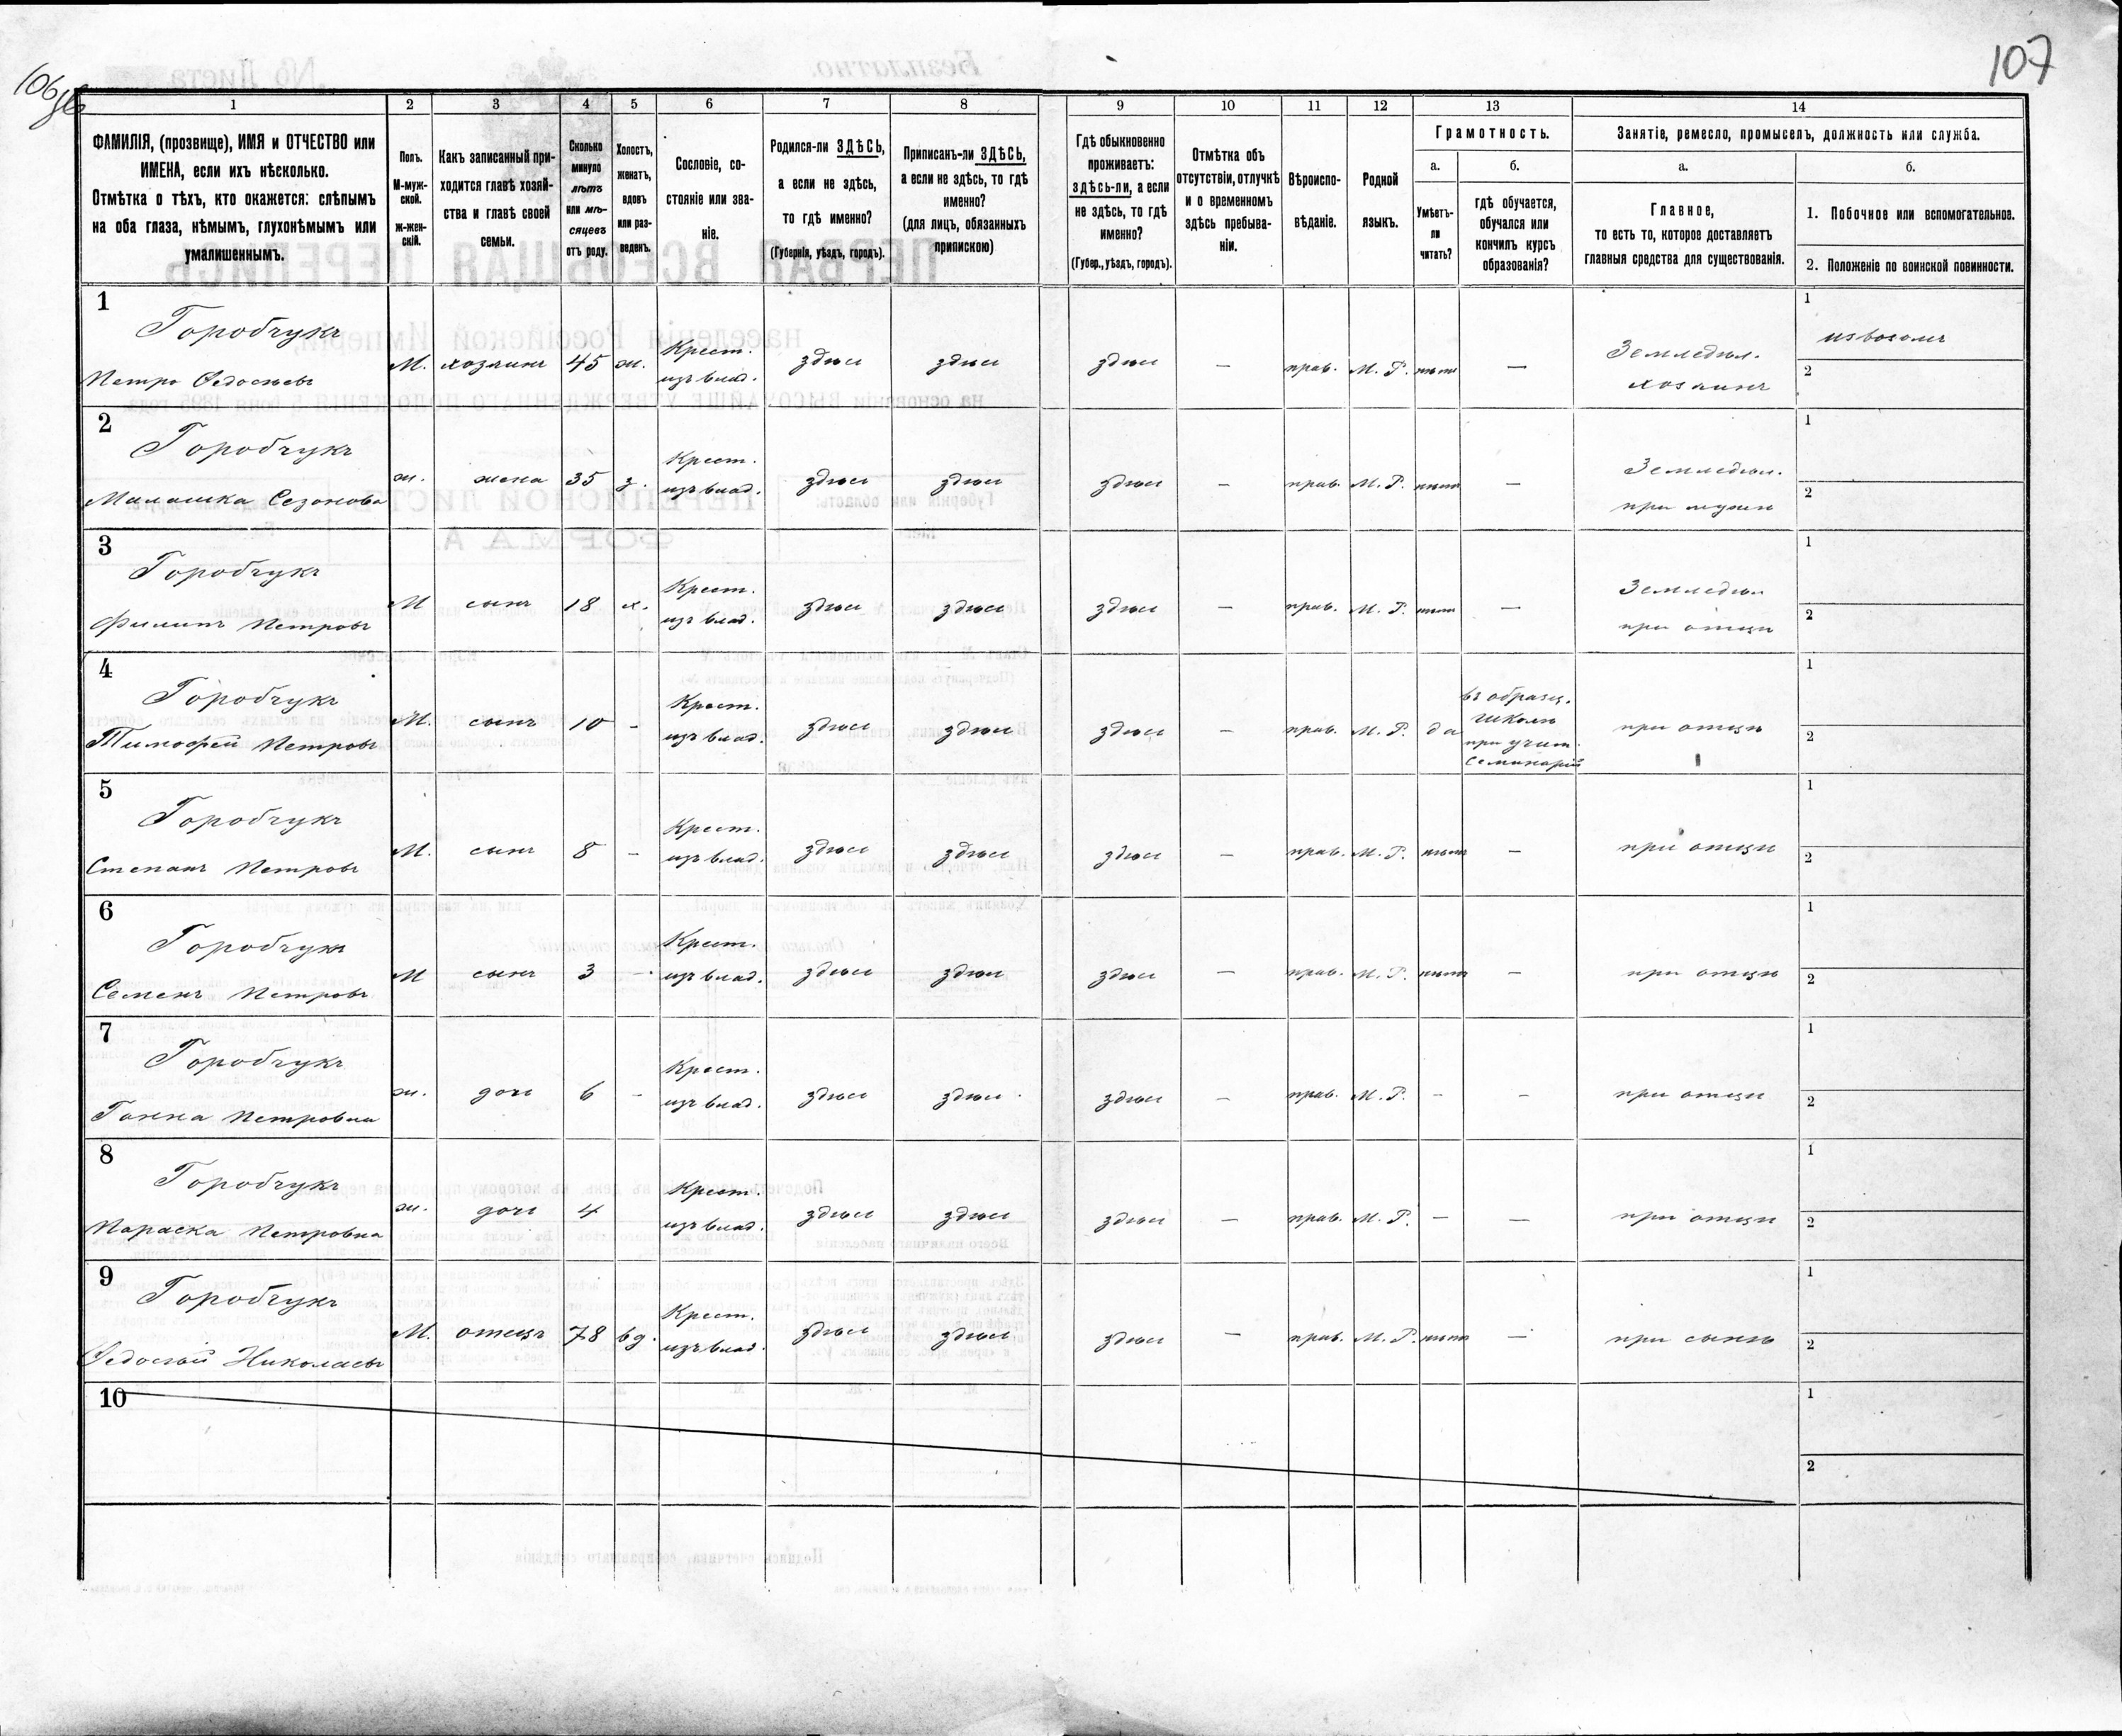 107
106 об
1 2 3 4 5 6 7 8 9 10 11 12 13 14
ФАМИЛІЯ, (прозвище), ИМЯ и ОТЧЕСТВО или
ИМЕНА, если ихъ нѣсколько.
Отмѣтка о тѣхъ, кто окажется: слѣпымъ
на оба глаза, нѣмымъ, глухонѣмымъ или
умалишеннымъ.
Полъ.
М-муж-
ской.
ж-жен-
скій.
Какъ записанный при-
ходится главѣ хозяй-
ства и главѣ своей
семьи.
Сколько
минуло
лѣтъ
или мѣ-
сяцевъ
отъ роду.
Холостъ,
женатъ,
вдовъ
или раз-
веденъ.
Сословіе, со-
стояніе или зва-
ніе.
Родился-ли ЗДѢСЬ,
а если не здѣсь,
то гдѣ именно?
(Губернія, уѣздъ, городъ).
Приписанъ-ли ЗДѢСЬ,
а если не здѣсь, то гдѣ
именно?
(для лицъ, обязанныхъ
припискою)
Гдѣ обыкновенно
проживаетъ:
здѣсь-ли, а если
не здѣсь, то гдѣ
именно?
(Губер., уѣздъ, городъ).
Отмѣтка объ
отсутствіи, отлучкѣ
и о временномъ
здѣсь пребыва-
ніи.
Вѣроиспо-
вѣданіе.
Родной
языкъ.
Грамотность.
а.
Умѣетъ-
ли
читать?
б.
гдѣ обучается,
обучался или
кончилъ курсъ
образованія?
Занятіе, ремесло, промыселъ, должность или служба.
а.
Главное,
то есть то, которое доставляетъ
главныя средства для существованія.
б.
1. Побочное или вспомогательное.
2. Положеніе по воинской повинности.
1
Горобчукъ
Петро Ѳедосѣевъ
М. хозяинъ 45 ж. Крест. изъ влад. здѣсь здѣсь здѣсь — прав. М. Р. нѣтъ — Земледѣл. хозяинъ
1 извозомъ
2
2
Горобчукъ
Малашка Сезонова
ж. жена 35 з. Крест. изъ влад. здѣсь здѣсь здѣсь — прав. М. Р. нѣтъ — Земледѣл. при мужѣ
1
2
3
Горобчукъ
Филипъ Петровъ
М сынъ 18 х. Крест. изъ влад. здѣсь здѣсь здѣсь — прав. М. Р. нѣтъ — Земледѣл. при отцѣ
1
2
4
Горобчукъ
Тимофей Петровъ
М. сынъ 10 - Крест. изъ влад. здѣсь здѣсь здѣсь — прав. М. Р. да въ образц. школѣ при учит. семинаріи при отцѣ
1
2
5
Горобчукъ
Степанъ Петровъ
М. сынъ 8 — Крест. изъ влад. здѣсь здѣсь здѣсь — прав. М. Р. нѣтъ — при отцѣ
1
2
6
Горобчукъ
Семенъ Петровъ
М сынъ 3 — Крест. изъ влад. здѣсь здѣсь здѣсь — прав. М. Р. нѣтъ — при отцѣ
1
2
7
Горобчукъ
Ганна Петровна
ж. дочь 6 - Крест. изъ влад. здѣсь здѣсь здѣсь — прав. М. Р. - - при отцѣ
1
2
8
Горобчукъ
Параска Петровна
ж. дочь 4 Крест. изъ влад. здѣсь здѣсь здѣсь — прав. М. Р. — — при отцѣ
1
2
9
Горобчукъ
Ѳедосѣй Николаевъ
М. отецъ 78 вд. Крест. изъ влад. здѣсь здѣсь здѣсь — прав. М. Р. нѣтъ — при сынѣ
1
2
10
1
2